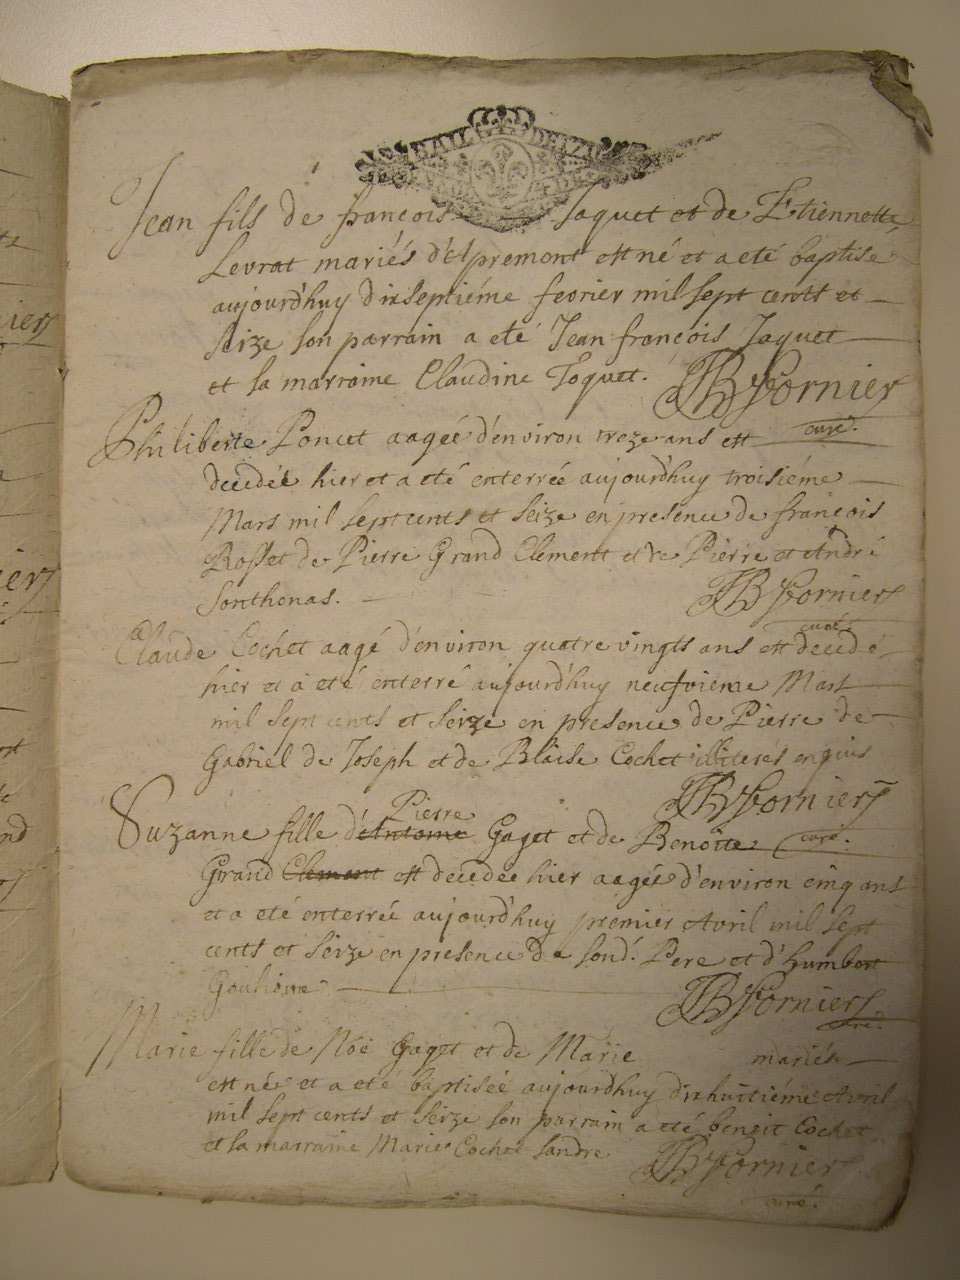 Jean fils de françois Jaquet et de Etiennette
Levrat mariés d'Apremont est né et a eté baptisé
aujourd'huy dixseptiéme fevrier mil sept cents et
seize son parrain a eté Jean françois Jaquet
et sa marraine Claudine Joquet. JB Fornier
curé.
Philiberte Poncet aagée d'environ treze ans est
decedée hier et a eté enterrée aujourd'huy troisiéme
Mars mil sept cents et seize en presence de françois
Rosset de Pierre Grand Clement et de Pierre et André
Sonthonas. JB Fornier
curé
Claude Cochet aagé d'environ quatre vingts ans est decedé
hier et a eté enterré aujourd'huy neufvieme Mars
mil sept cents et seize en presence de Pierre de
Gabriel de Joseph et de Blaise Cochet illiterés enquis
JB Fornier
Pierre
Suzanne fille d'Antoine Gaget et de Benoite curé.
Grand Clement est decedée hier aagée d'environ cinq ans
et a eté enterrée aujourd'huy premier Avril mil sept
cents et seize en presence de sond. Pere et d'humbert
JB Fornier
curé.
Marie fille de Noë Gaget et de Marie mariés
est née et a eté baptisée aujourd'huy dixhuitiéme Avril
mil sept cents et seize son parrain a eté benoit Cochet
et sa marraine Marie Cochet Landre JB Fornier
curé.